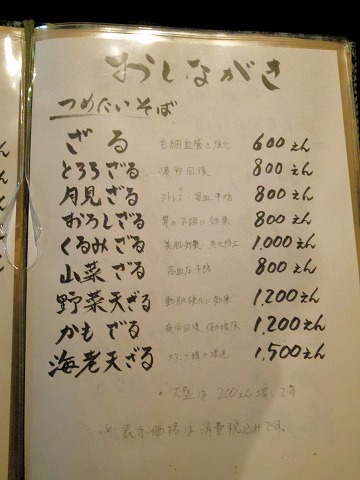 おしながき
つめたいそば
ざる 毛細血管を強化 600えん
とろろざる 疲労回復 800えん
月見ざる ストレス・貧血予防 800えん
おろしざる 胃の不調に効果 800えん
くるみざる 美肌効果・老化防止 1,000えん
山菜ざる 高血圧予防 800えん
野菜天ざる 動脈硬化に効果 1,200えん
かもざる 疲労回復 1,200えん
海老天ざる スタミナ 1,500えん
・大盛は200えん増しです
※表示価格は消費税込みです。